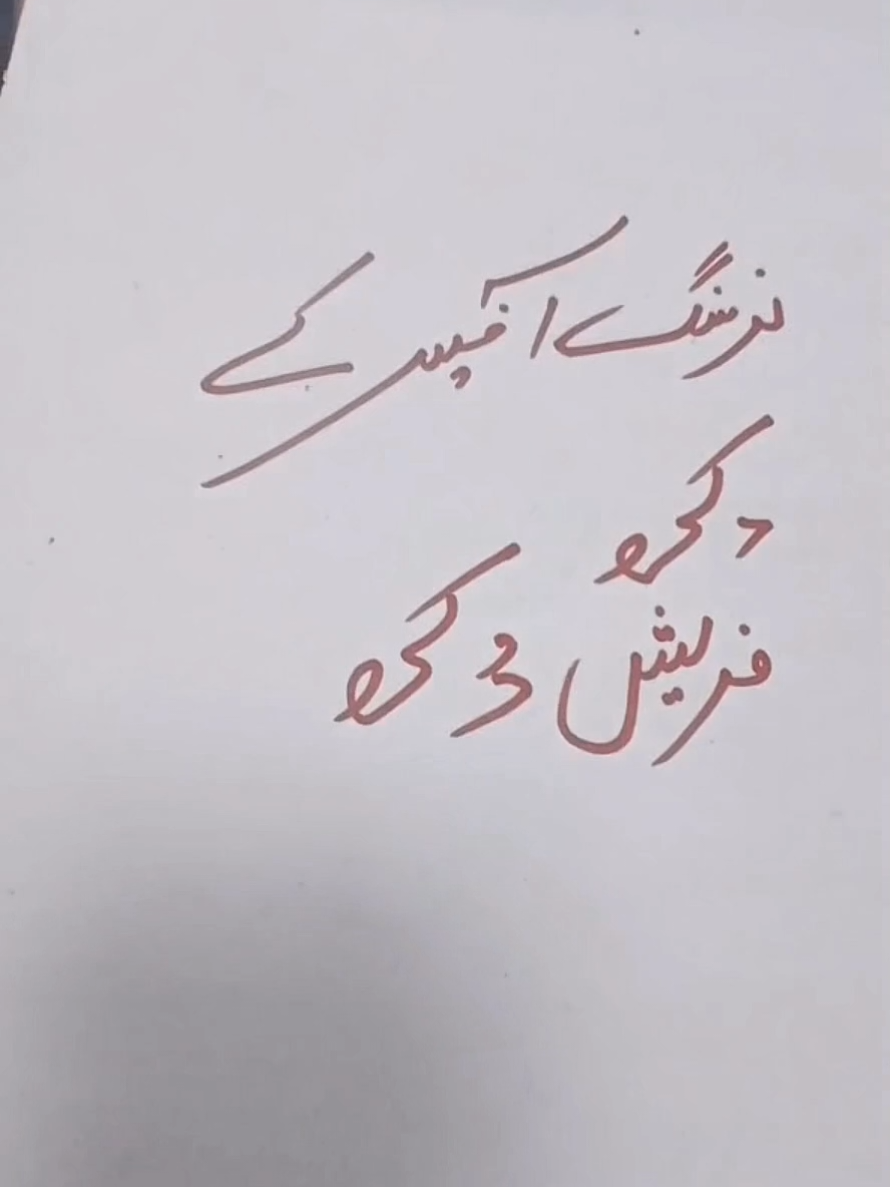 نرسنگ آفیسر کے
دکھ
فریش دُکھ